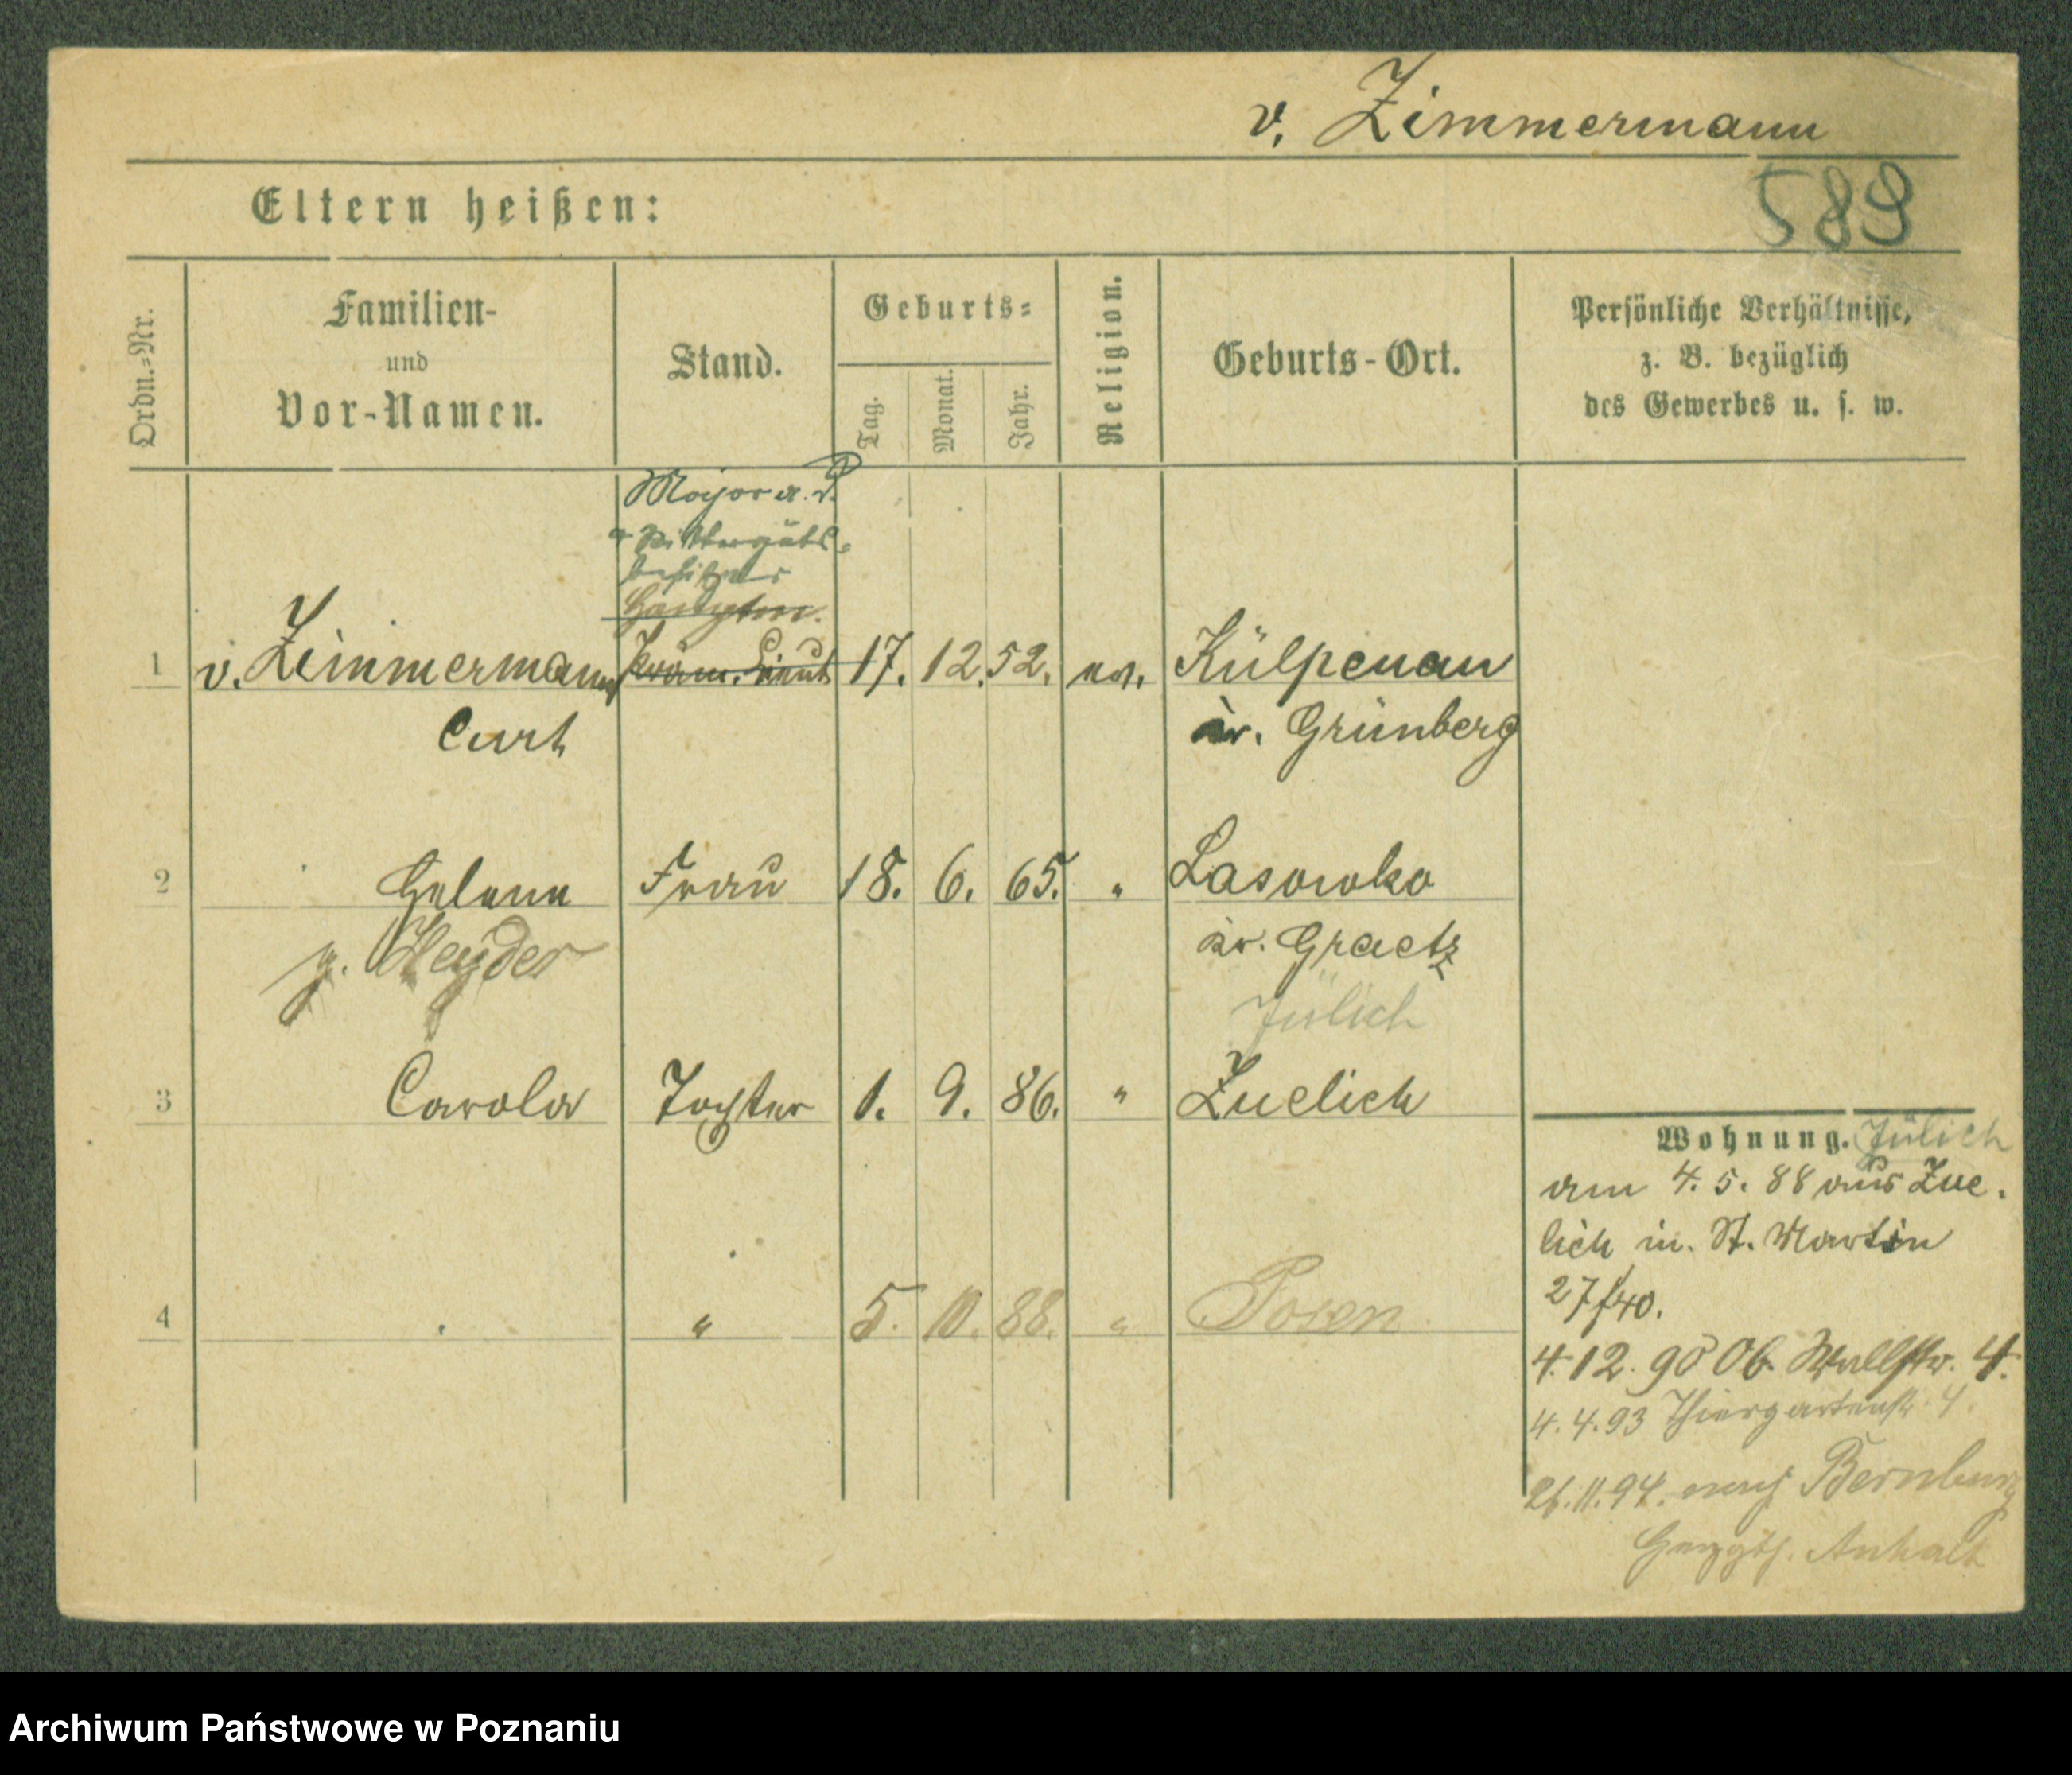 v. Zimmermann
589
Eltern heißen:
Ordn.-Nr.
Familien-
und
Vor-Namen.
Stand.
Geburts-
Tag.
Monat.
Jahr.
Religion.
Geburts-Ort.
Persönliche Verhältnisse,
z. B. bezüglich
des Gewerbes u. s. w.
Major a. D.
Rittergüts-
besitzer
Hauptm.
1 v. Zimmermann Präm. Lieut 17. 12. 52. ev. Külpenau
Curt kr. Grünberg
2 Helene Frau 18. 6. 65. " Lasowko
g. Heyder kr. Graetz
Jülich
3 Carola Tochter 1. 9. 86. " Zuelich
4 " 5. 10. 88. " Posen
Wohnung. Jülich
am 4. 5. 88 aus Zue-
lich in. St. Martin
27/40.
4. 12. 90 Ob. Wallstr. 4.
4. 4. 93 Thiergartenstr. 4.
26. 11. 94. nach Bernburg
Herzgth. Anhalt
Archiwum Państwowe w Poznaniu